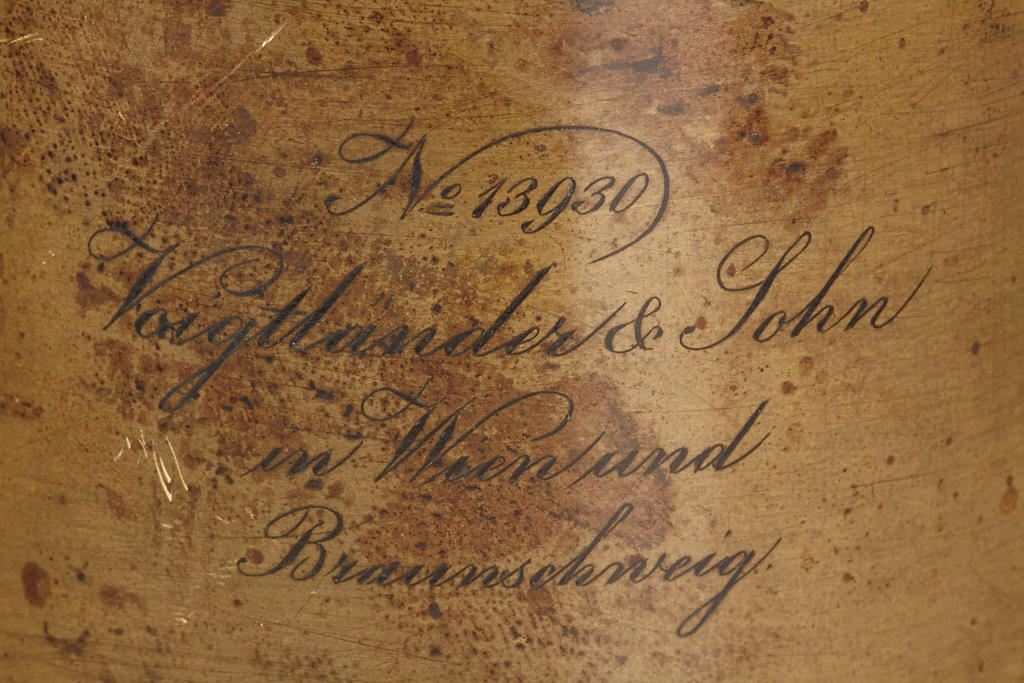 No 13930
Voigtländer & Sohn
in Wien und
Braunschweig.